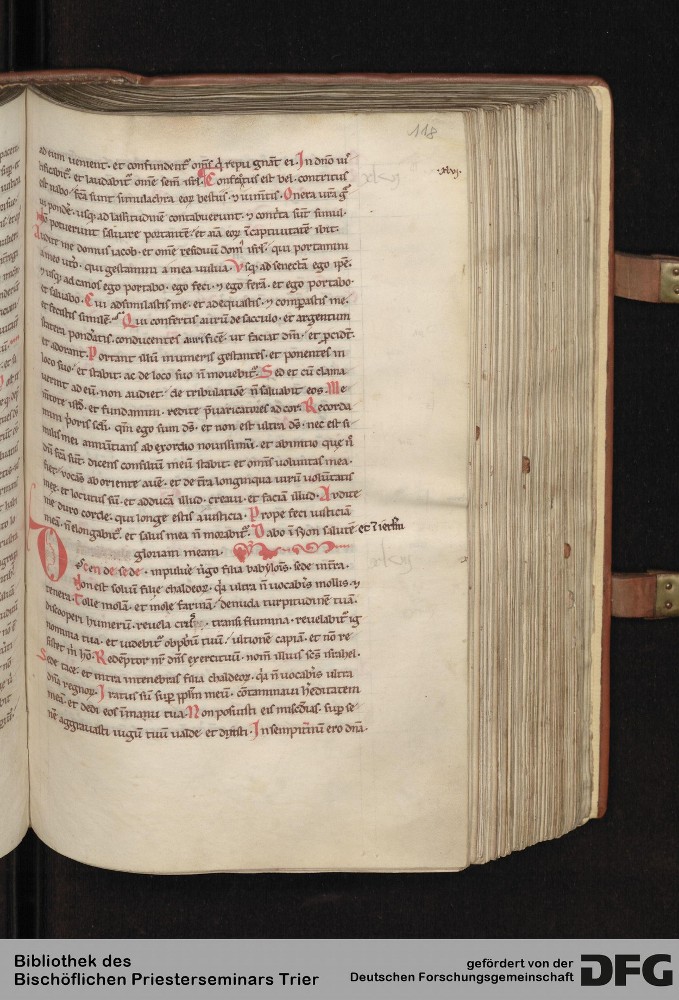 118
ad eum venient· et confundent᷑ om̅s q̇ repugnant ei· In dn̅o iu
stificabit᷑ et laudabit᷑ omne sem̅ isrl· Confractus est bel· contritus
est nabo· fc̅a sunt simulachra eoꝝ bestiis· ⁊ iumtis· Onera ur̅a
xlvi·
usq; ad lassitudinē contabuerunt· ⁊ contrita sūt simul·
potuerunt salvare portantē· et aīa eoꝝ ī captivitatē ibit·
Audite me domus iacob· et omne residuū dom᷒ isrl· qui portamini
a meo utō· qui gestamini a mea vulva· Usq; ad senectā ego ipē·
⁊ usq; ad canos ego portabo· ego feci· ⁊ ego ferā· et ego portabo·
et salvabo· Cui adsimilastis me· et adequastis· ⁊ comparastis me·
et fecistis similē· Qui confertis aurū de sacculo· et argentum
statera pond̓atis· conducentes aurificē· ut faciat dm̅· et p̱cid̅t·
et adorant· Portant illū in umeris gestantes· et ponentes in
loco suo· et stabit· ac de loco suo n̅ movebit᷑· Sed et cū clama
verint ad eū· non audiet· de tribulatiōe n̅ salvabit eos· Me
mtote istd· et fundamini· redite p̄varicatores ad cor· Recorda
mini p̄oris sc̅li· qm̅ ego sum ds̅· et non est ultra ds̅· nec est si
milis mei· annūtians ab exordio novissimū· et ab initio que n̅
dū fc̅a sūt· dicens consiliū meū stabit· et omīs voluntas mea
fiet· vocās ab oriente avē· et de t̅ra longinqua virū volūtatis
mee· et locutus sū· et adducā illud· creavi· et faciā illud· Audite
me duro corde· qui longe estis a iusticia· Prope feci iusticiā
meā· n̅ elongabit᷑· et salus mea n̅ morabit᷑· Dabo ī syon salutē· et ī ierl̅m
gloriam meam·
xlvij
Descende sede· in pulvē v̓go filia babylo̅is· sede in t̅ra·
Non est soliū filie chaldeoꝝ· q̇a ultra n̅ vocabis mollis· ⁊
tenera· Tolle molā· et mole farinā· denuda turpitudinē tuā·
discooperi humerū· revela crus· transi flumina· revelabit᷑ ig
nominia tua· et videbit᷑ obp̱briū tuū· ultionē capiā· et nō re
sistet m̅ hō· Redēptor nr̅ dn̅s exercituū· nom̅ illius sc̅s israhel·
Sede tace· et intra in tenebras filia chaldeoꝝ· q̇a n̅ vocabis ultra
dn̅a regnoꝝ· Iratus sū sup̱ pp̱lm meū· cōtaminavi h̓editatem
meā· et dedi eos ī manu tua· Non posuisti eis mis̅c̅dias· sup̱ se
nē aggravasti iugū tuū valde· et dixisti· In sempit̓nū ero dn̅a·
Bibliothek des
Bischöflichen Priesterseminars Trier
gefördert von der
Deutschen Forschungsgemeinschaft
DFG